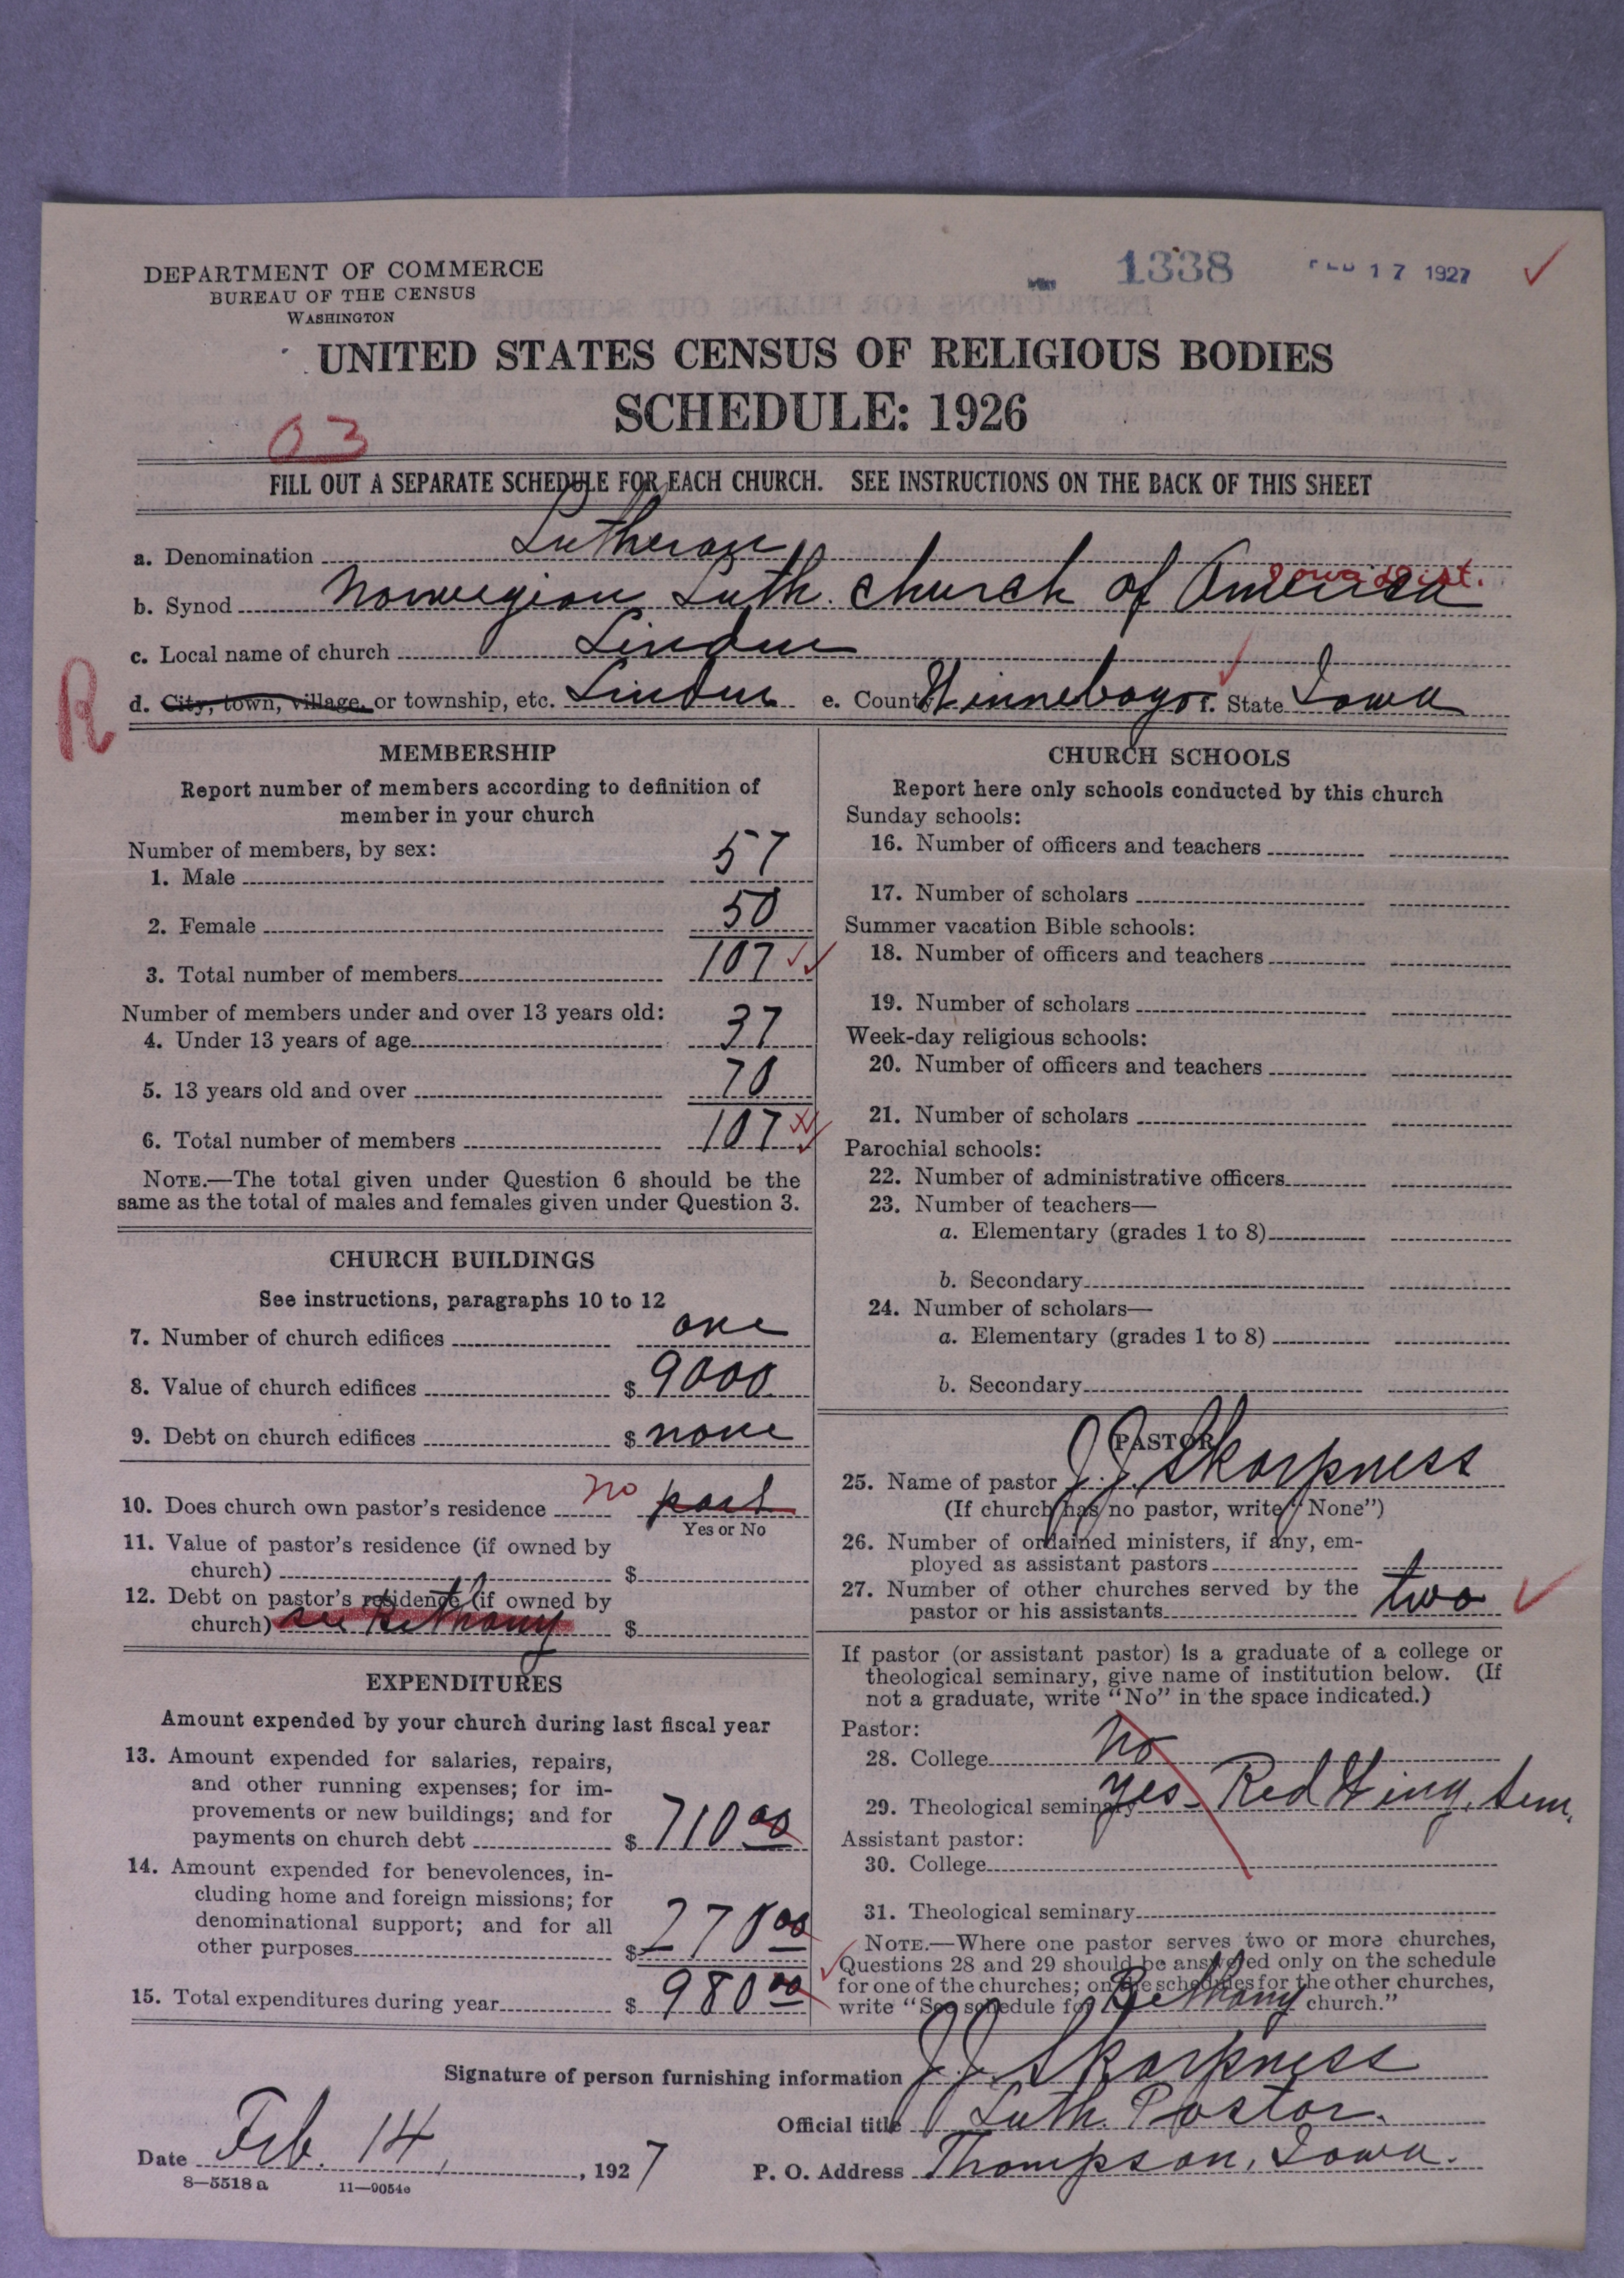 DEPARTMENT OF COMMERCE
BUREAU OF THE CENSUS
WASHINGTON
1338
FEB 17 1927
UNITED STATES CENSUS OF RELIGIOUS BODIES
SCHEDULE: 1926
03
FILL OUT A SEPARATE SCHEDULE FOR EACH CHURCH. SEE INSTRUCTIONS ON THE BACK OF THIS SHEET
a. Denomination Lutheran
b. Synod Norwegian Luth. church of America Iowa Dist.
c. Local name of church Linden
R
d. City, town, village, or township, etc. Linden e. County Winnebago f. State Iowa
MEMBERSHIP
Report number of members according to definition of
member in your church
Number of members, by sex:
1. Male 57
2. Female 50
3. Total number of members 107
Number of members under and over 13 years old:
4. Under 13 years of age 37
5. 13 years old and over 70
6. Total number of members 107
NOTE.—The total given under Question 6 should be the
same as the total of males and females given under Question 3.
CHURCH BUILDINGS
See instructions, paragraphs 10 to 12
7. Number of church edifices one
8. Value of church edifices $ 9000
9. Debt on church edifices $ none
10. Does church own pastor's residence no part
Yes or No
11. Value of pastor's residence (if owned by
church) $
12. Debt on pastor's residence (if owned by
church) see Bethany $
EXPENDITURES
Amount expended by your church during last fiscal year
13. Amount expended for salaries, repairs,
and other running expenses; for im-
provements or new buildings; and for
payments on church debt $ 710 00
14. Amount expended for benevolences, in-
cluding home and foreign missions; for
denominational support; and for all
other purposes $ 270 00
15. Total expenditures during year $ 980 00
CHURCH SCHOOLS
Report here only schools conducted by this church
Sunday schools:
16. Number of officers and teachers
17. Number of scholars
Summer vacation Bible schools:
18. Number of officers and teachers
19. Number of scholars
Week-day religious schools:
20. Number of officers and teachers
21. Number of scholars
Parochial schools:
22. Number of administrative officers
23. Number of teachers—
a. Elementary (grades 1 to 8)
b. Secondary
24. Number of scholars—
a. Elementary (grades 1 to 8)
b. Secondary
PASTOR
25. Name of pastor J. J. Skarpness
(If church has no pastor, write "None")
26. Number of ordained ministers, if any, em-
ployed as assistant pastors
27. Number of other churches served by the
pastor or his assistants two
If pastor (or assistant pastor) is a graduate of a college or
theological seminary, give name of institution below. (If
not a graduate, write "No" in the space indicated.)
Pastor:
28. College No
29. Theological seminary yes - Red Wing, Sem.
Assistant pastor:
30. College
31. Theological seminary
NOTE.—Where one pastor serves two or more churches,
Questions 28 and 29 should be answered only on the schedule
for one of the churches; on the schedules for the other churches,
write "See schedule for Bethany church."
Signature of person furnishing information J. J. Skarpness
Official title Luth. Pastor.
Date Feb. 14, 1927
P. O. Address Thompson, Iowa.
8—5518 a 11—9054c